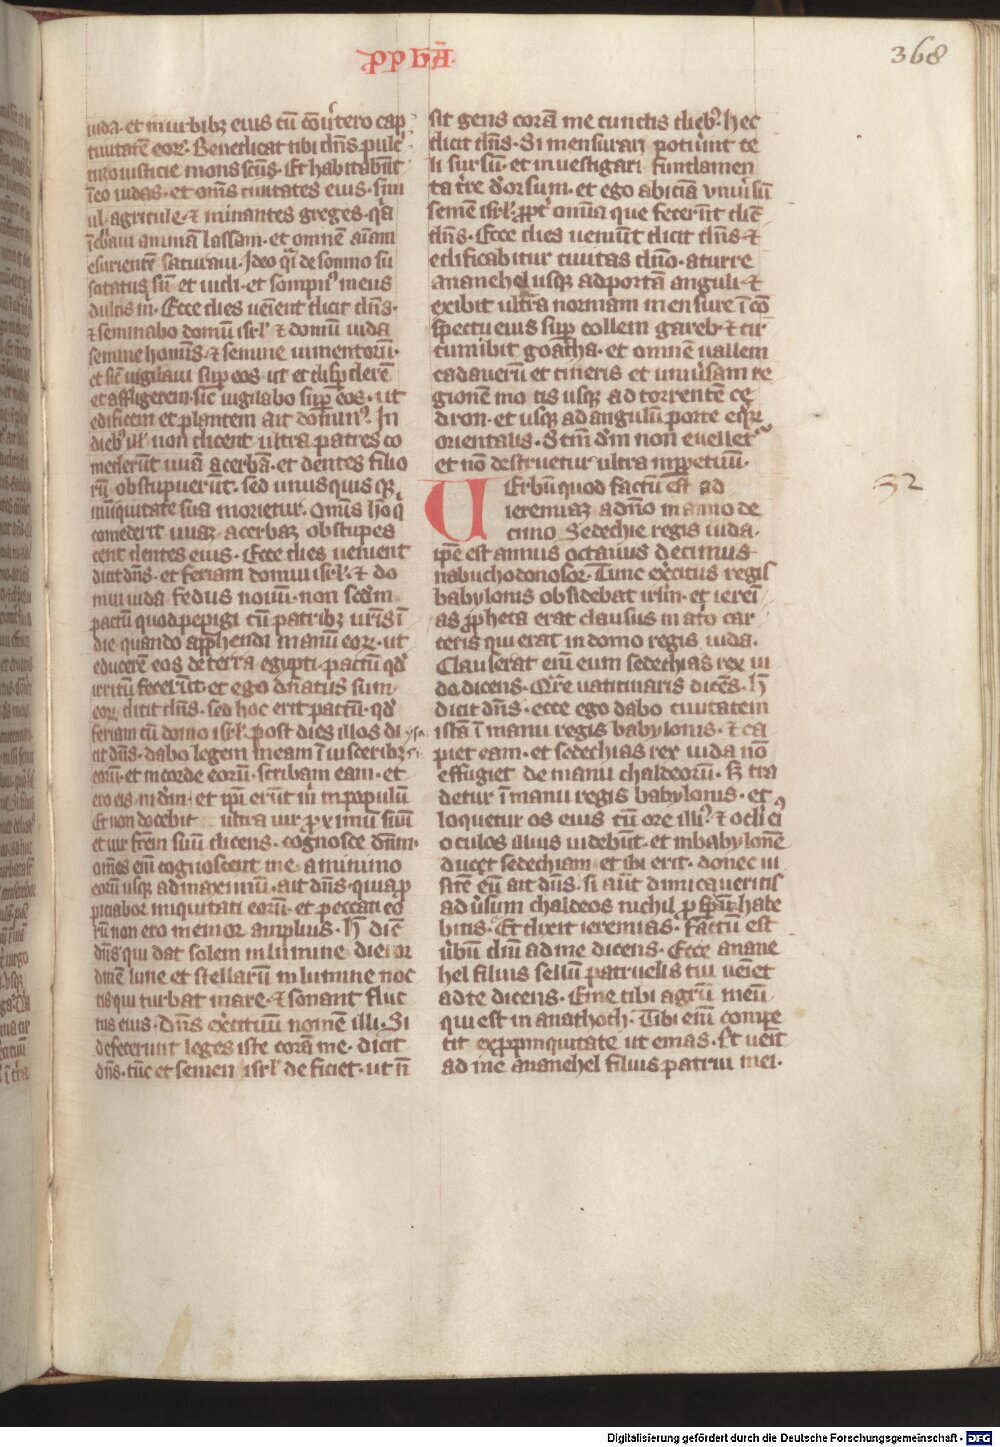 ꝓꝓħA
368
iuda · et in urbibꝫ eius cū cōuͥtero cap
tiuitatē eoꝝ · Benedicat tibi dn̄s pulc̄
tudo iusticie mons sc̄us · Et habitabūt
ī eo iudas · et om̄s ciuitates eius · sim
ul · agricule · ⁊ minantes greges · qͥa
īeb̾aui animā lassam · et omnē aīam
esurientē saturaui · Ideo qͣi de somno su
scitatus sū et uidi · et sompn᷒ meus
dulcis m̄ · Ecce dies ueīent dicit dn̄s ·
⁊ seminabo domū isrł ⁊ domū iuda
semine hominis · ⁊ semine iumentoꝝ ·
et sic̄ uigilaui sup̄ eos · ut et disp̄derē
et affligerem · sic̄ iugilabo sup̄ eos · ut
edificem et plantem ait domin᷒ · In
dieb᷒ ill̄ non dicent ultra patres co
mederūt uuā acerbā · et dentes filio
rū obstupuerūt · sed unusquisqꝫ
in iniquitate sua morietur · Omnis hō q̄
comederit uuaꝫ acerbaꝫ obstupes
cent dentes eius · Ecce dies uenient
dicit dn̄s · et feriam domui isrł · ⁊ do
mui iuda fedus nouū · non scd̄m
pactū quod pepigi cū patribꝫ ur̄is ī
die quando app̄hendi manū eoꝝ · ut
educerē eos de terra egypti · pactū qd̄
irritū fecerūt · et ego dn̄atus sum
eoꝝ dicit dn̄s · sed hoc erit pactū · qd̄
feriam cū domo isrł · post dies illos di
cit dn̄s · dabo legem meam ī uisceribꝫ
eoꝝ · et in corde eoꝝ · scribam eam · et
ero eis in dm̄ · et ipi erūt m̄ in populū
Et non docebit ultra uir proximū suū
et uir frēm suū dicens · cognosce dn̄m ·
om̄es enī cognoscent me · a minimo
eoꝝ usqꝫ ad maximū · ait dn̄s · quia ꝓ
piciabor iniquitati eoꝝ · et peccati eo
rū non ero memor amplius · h̄ dic̄
dn̄s qui dat solem in lumine diei or
dinē lune et stellarū in lumine noc
tis qui turbat mare · ⁊ sonant fluc
tus eius · dn̄s exͥcituū nomē illi · Si
defecerint leges iste corā me · dicit
dn̄s · tūc et semen isrł deficiet · ut n̄
sit gens corā me cunctis dieb᷒ · hec
dicit dn̄s · Si mensurari potuͥint ce
li sursū · et inuestigari fundamen
ta tͥre dͦorsum · et ego abiciā vniuͥsū
semē isrł · ꝓpt̄ omīa que fecerūt dic̄
dn̄s · Ecce dies ueniūt dicit dn̄s ⁊
edificabitur ciuitas dn̄o · a turre
ananehel usqꝫ ad portā anguli · ⁊
exibit ultra normam mensure ī cō
spectu eius sup̄ collem gareb · ⁊ cir
cumibit goatha · et omnē uallem
cadauerū et cineris et uniuͥsam re
gionem mortis usqꝫ ad torrentē ce
dron · et usqꝫ ad angulū porte eq̄ꝝ
orientalis · Sc̄m dn̄i non euelletᷣ
et nō destruetur ultra in ꝑpetuū ·
UErbū quod factū est ad
ieremiaꝫ a dn̄o in anno de
cimo Sedechie regis iuda ·
ip̄e est annus octauus decimus
nabuchodonosor · Tunc exͥcitus regis
babylonis obsidebat irlm̄ · et ierem̄i
as ꝓpheta erat clausus in atͦo car
ceris qui erat in domo regis iuda ·
Clauserat enī eum sedechias rex iu
da dicens · Qͣre uaticinaris dicēs · h̄
dicit dn̄s · ecce ego dabo ciuitatem
istā ī manu regis babylonis · ⁊ ca
piet eam · et sedechias rex iuda nō
effugiet de manu chaldeorū · sꝫ tra
detur ī manu regis babylonis · et
loquetur os eius cū ore illi᷒ · ⁊ ocłi ei᷒
oculos illius uidebūt · et in babylonē
ducet sedechiam · et ibi erit · donec ui
sitē eū ait dn̄s · si aūt dimicaueritis
aduͥsum chaldeos nichil ꝓspeꝝ habe
bitis · Et dixit ieremias · Factū est
uͥbū dn̄i ad me dicens · Ecce anane
hel filius sellū patruelis tui ueīet
ad te dicens · Eme tibi agrū meū
qui est in anathoth · Tibi enī compe
tit ex ꝓpinquitate ut emas · Et ueīt
ad me ananehel filius patrui mei ·
32
Digitalisierung gefördert durch die Deutsche Forschungsgemeinschaft - DFG